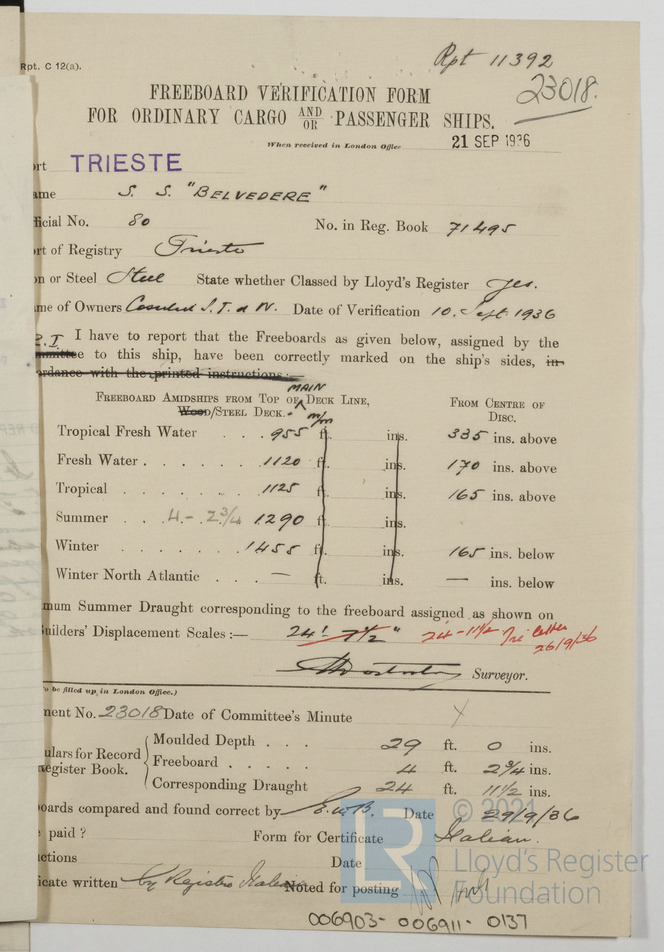 Rpt. C 12(a).
Rpt 11392
23018.
FREEBOARD VERIFICATION FORM
FOR ORDINARY CARGO AND OR PASSENGER SHIPS.
When received in London Office 21 SEP 1936
ort TRIESTE
ame S. S. "BELVEDERE"
ficial No. 80 No. in Reg. Book 71495
rt of Registry Trieste
on or Steel Steel State whether Classed by Lloyd's Register yes.
me of Owners Cosulich S.T. a N. Date of Verification 10. Sept 1936
R.I I have to report that the Freeboards as given below, assigned by the
mmittee to this ship, have been correctly marked on the ship's sides, in
ordance with the printed instructions:
MAIN
FREEBOARD AMIDSHIPS FROM TOP OF DECK LINE, FROM CENTRE OF
WOOD/STEEL DECK. m/m DISC.
Tropical Fresh Water . . . 955 ft. ins. 335 ins. above
Fresh Water . . . . . . 1120 ft. ins. 170 ins. above
Tropical . . . . . . 1125 ft. ins. 165 ins. above
Summer . . . 4.- 2 3/4 1290 ft. ins.
Winter . . . . . . . 1455 ft. ins. 165 ins. below
Winter North Atlantic . . . — ft. ins. — ins. below
mum Summer Draught corresponding to the freeboard assigned as shown on
uilders' Displacement Scales :— 24' 7 1/2" 24-11 1/2 letter
26/9/36
Surveyor.
o be filled up in London Office.)
ment No. 23018 Date of Committee's Minute X
ulars for Record Moulded Depth . . . 29 ft. 0 ins.
egister Book. Freeboard . . . . . 4 ft. 2 3/4 ins.
Corresponding Draught 24 ft. 11 1/2 ins.
oards compared and found correct by E.W.B. Date 29/9/36
paid ? Form for Certificate Italian.
ctions Date
icate written by Registro Italiano Noted for posting
© 2021
LR
Lloyd's Register
Foundation
006903- 006911- 0137